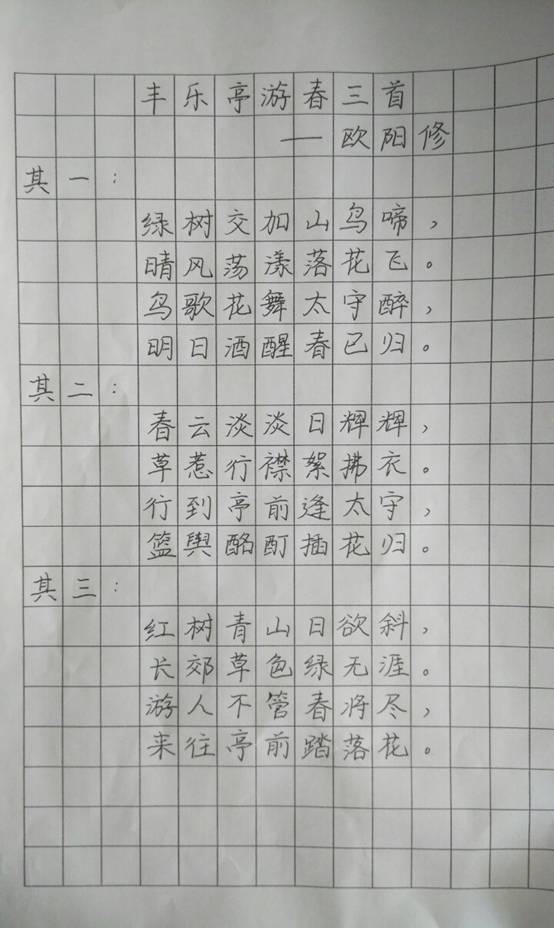 丰乐亭游春三首
——欧阳修
其一：
绿树交加山鸟啼，
晴风荡漾落花飞。
鸟歌花舞太守醉，
明日酒醒春已归。
其二：
春云淡淡日辉辉，
草惹行襟絮拂衣。
行到亭前逢太守，
篮舆酩酊插花归。
其三：
红树青山日欲斜，
长郊草色绿无涯。
游人不管春将尽，
来往亭前踏落花。